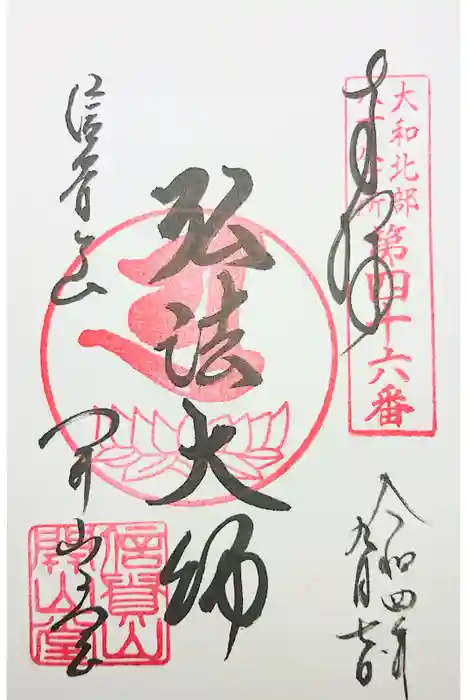 奉拝
大和北部
八十八ヶ所
第四十六番
令和四年
九月吉日
弘法大師
信貴山
開山堂
信貴山
開山堂